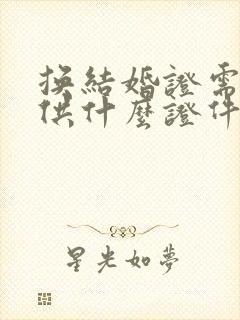 換結婚證需
供什麼證件
星光如夢